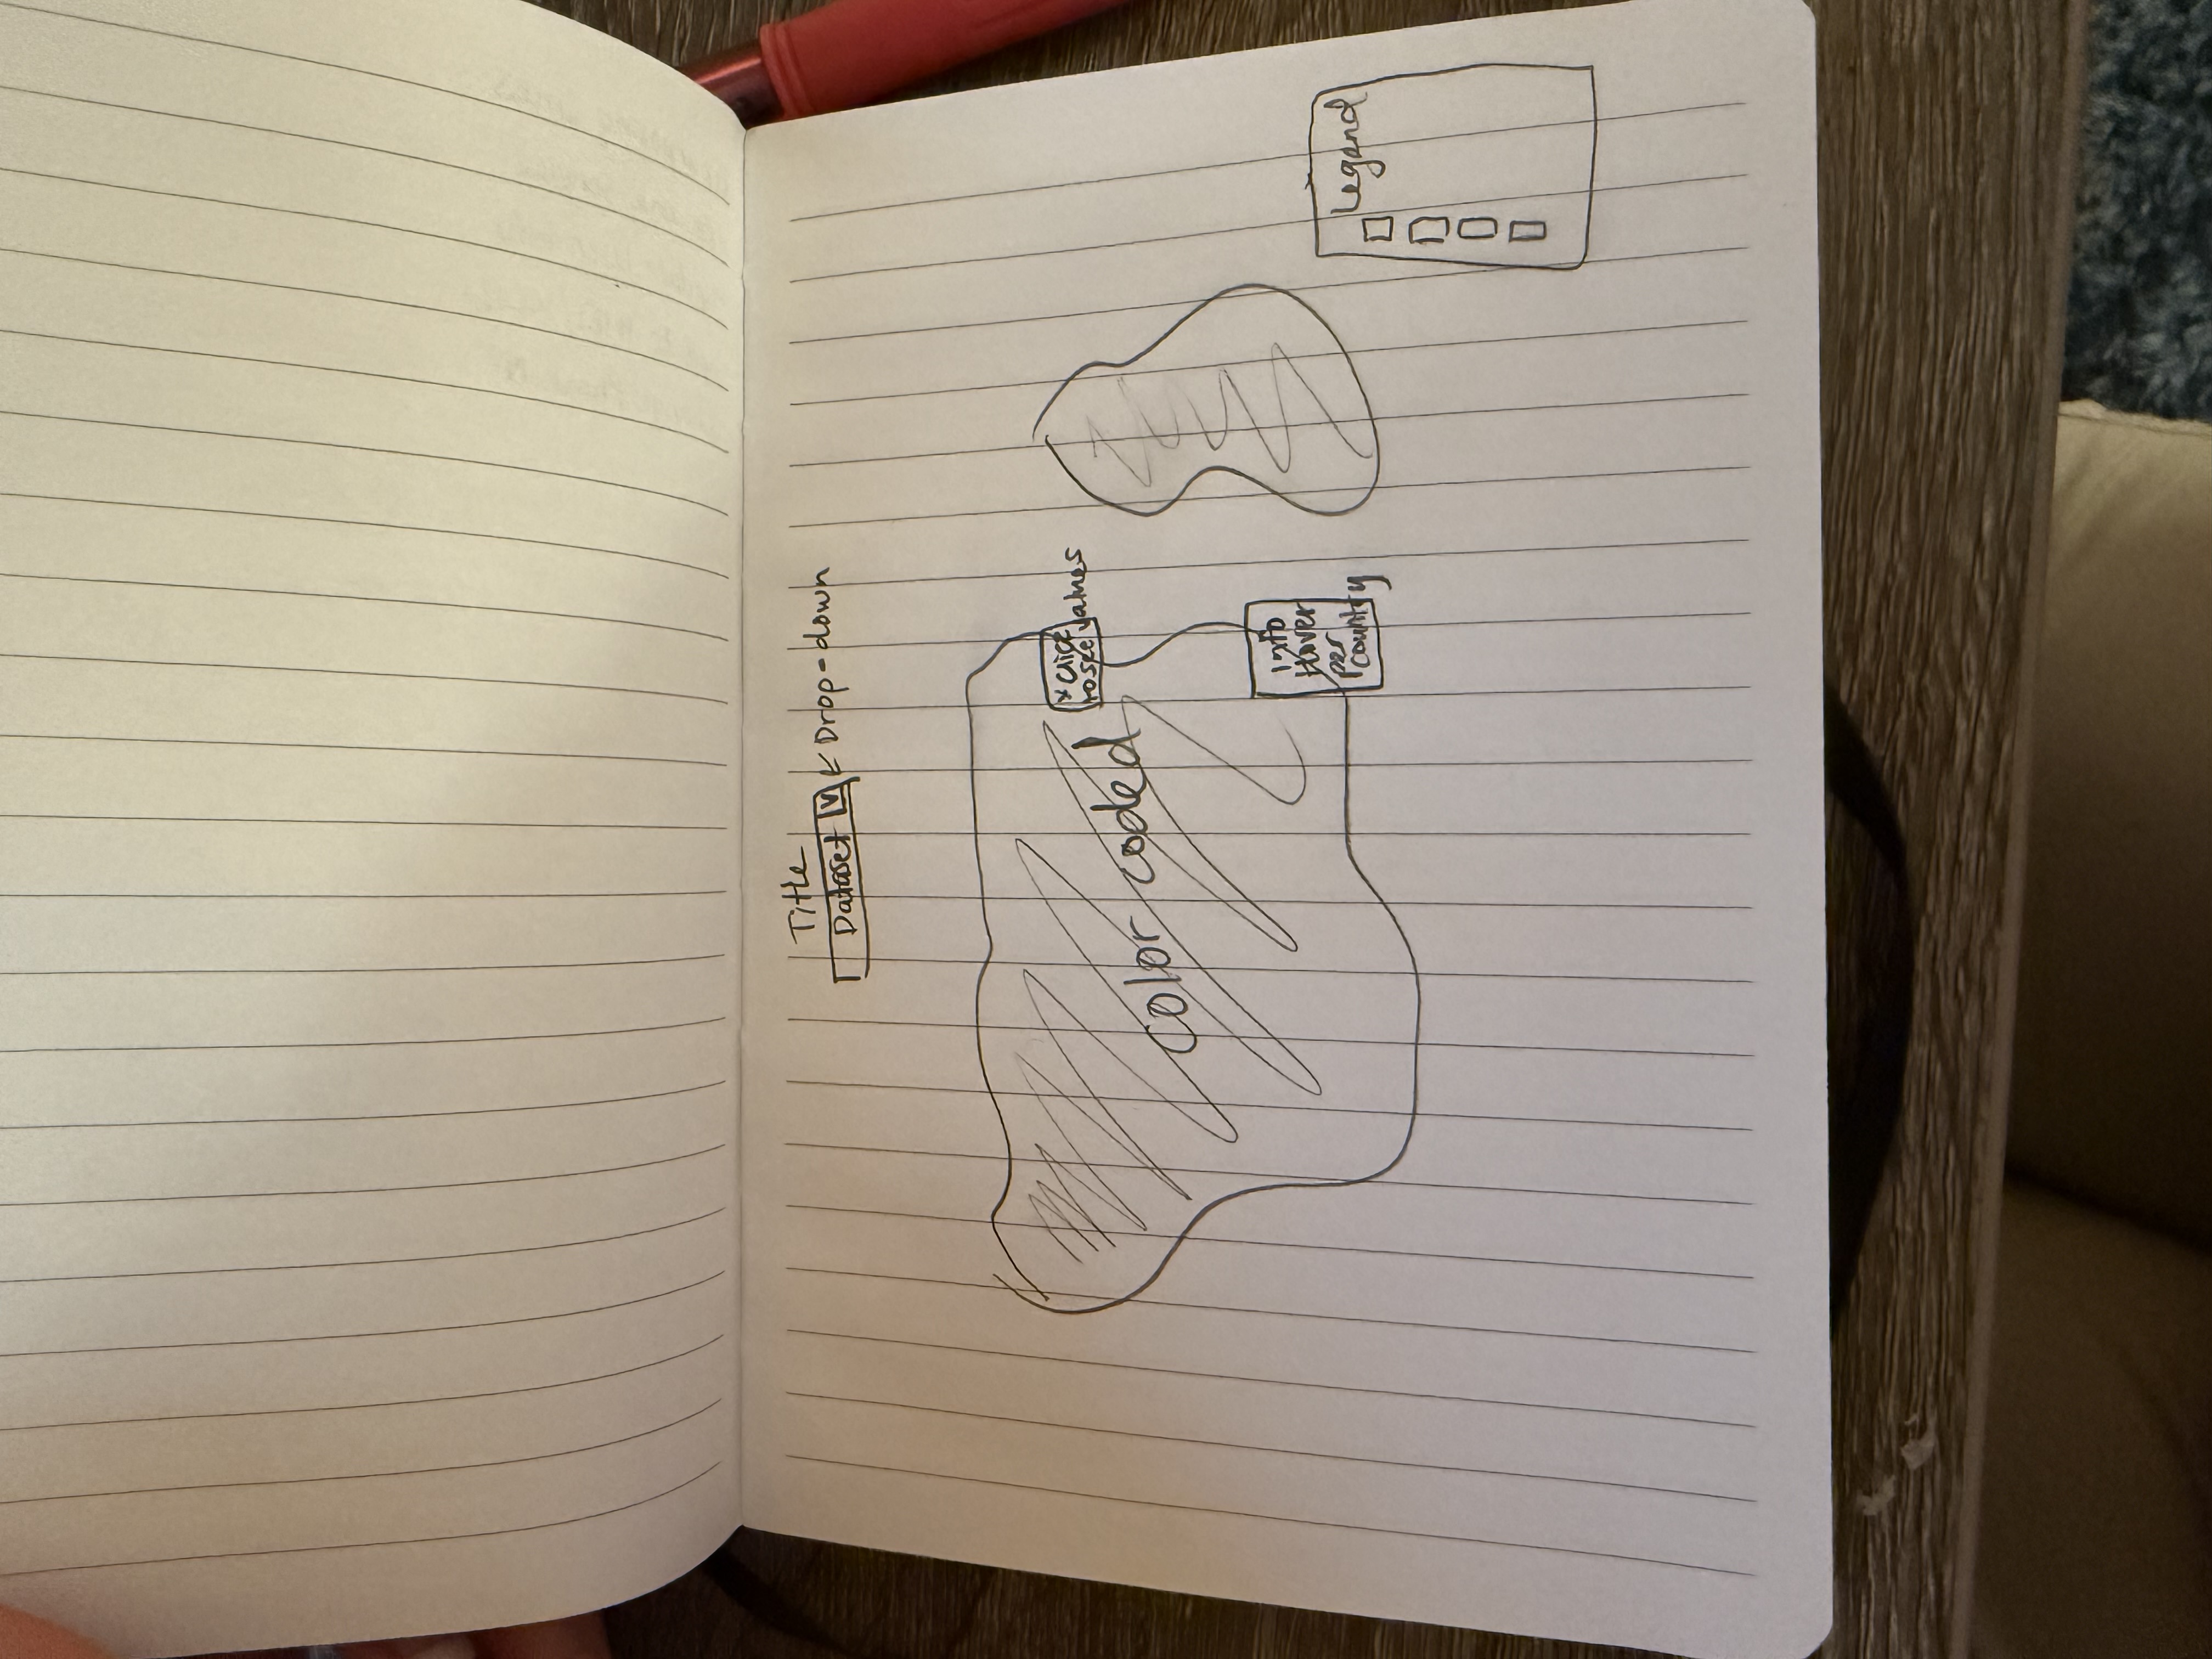 Title
Dataset V
Drop-down
color coded
x click
to see values
info
Hover
per
country
Legend